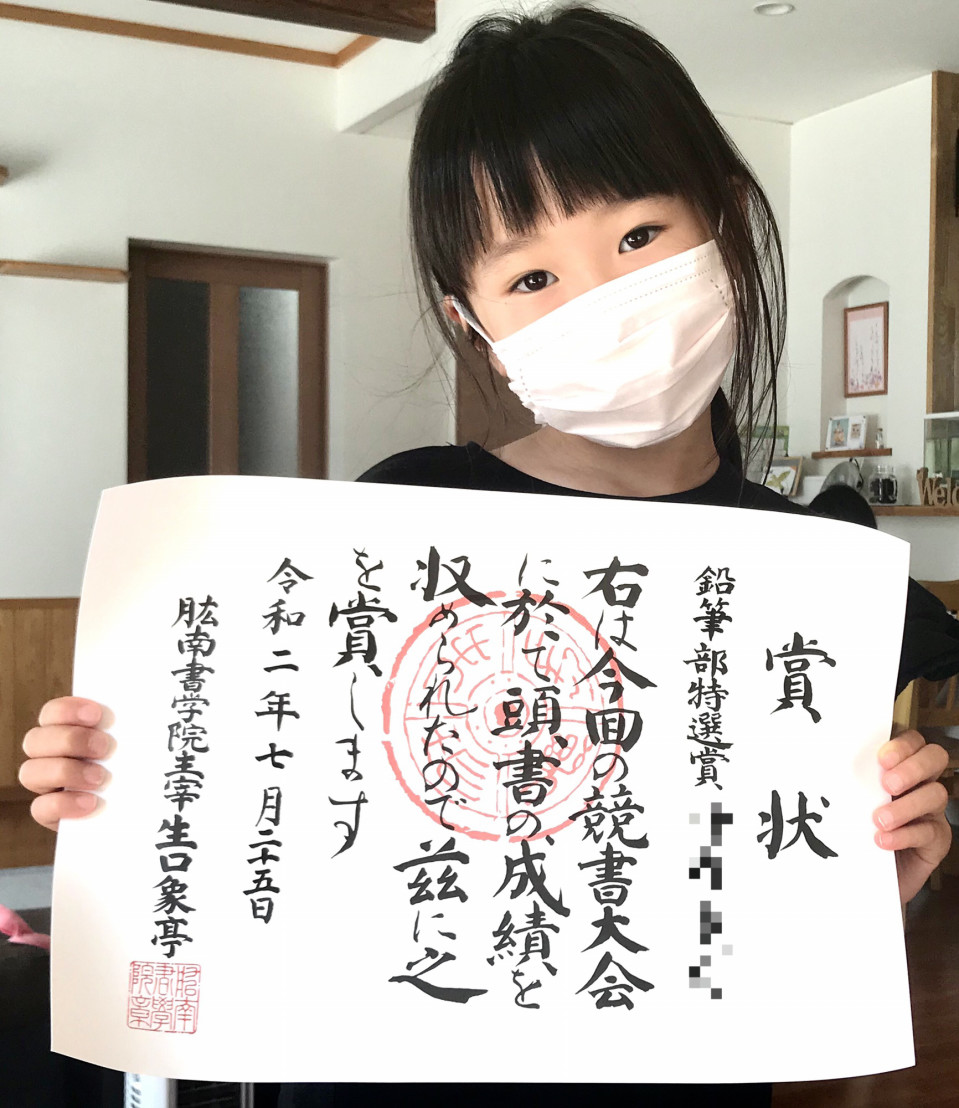 賞状
鉛筆部特選賞
右は今回の競書大会
に於て頭書の成績を
収められたので茲に之
を賞します
令和二年七月二十五日
肱南書学院主宰生口象亭
Welc